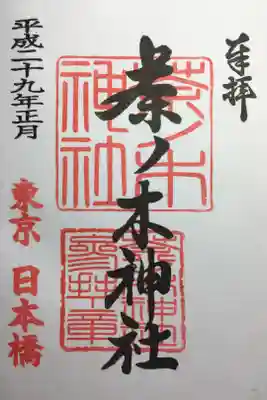 奉拝
茶ノ木神社
茶ノ木神社
平成二十九年正月
東京 日本橋